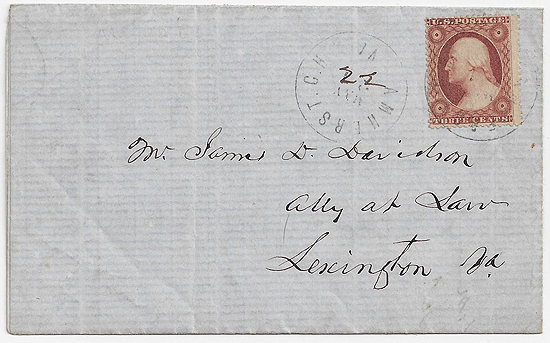 U.S. POSTAGE
THREE CENTS
AMHERST. C.H. VA
22
MAY
Mr. James D. Davidson
Atty at Law
Lexington Va